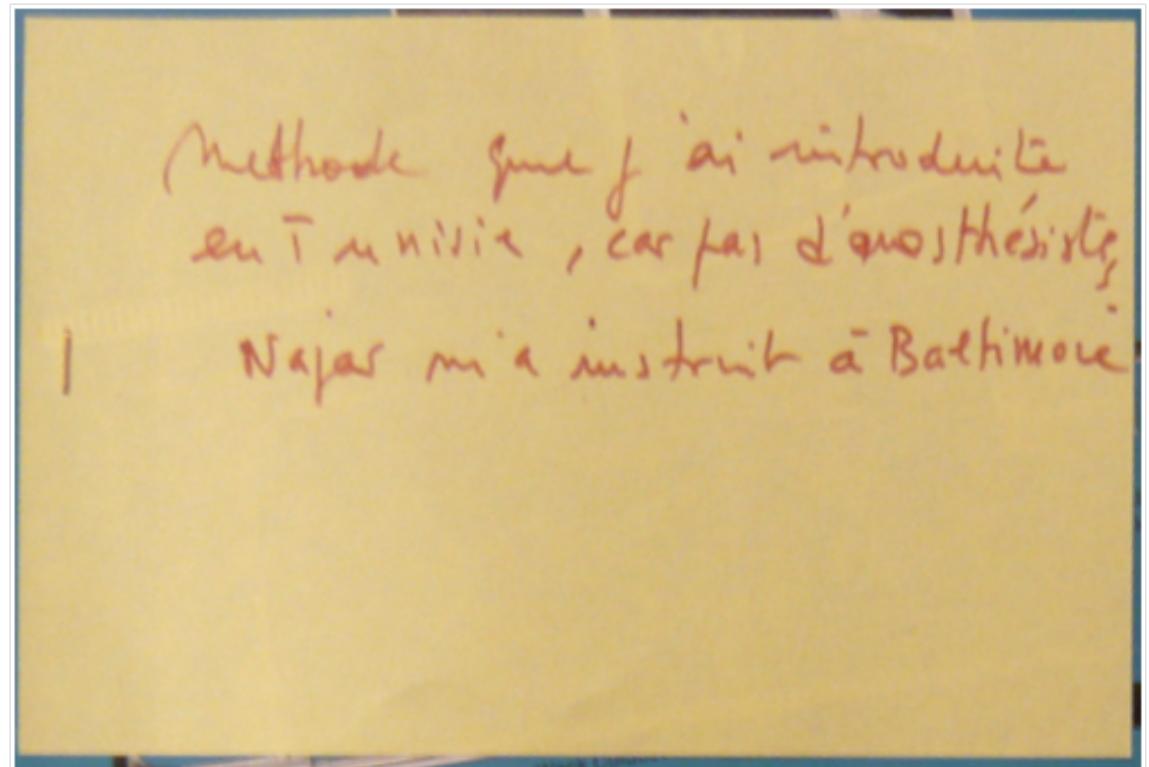 Methode que j'ai introduite
en Tunisie, car pas d'anesthésiste,
Najar m'a instruit à Baltimore